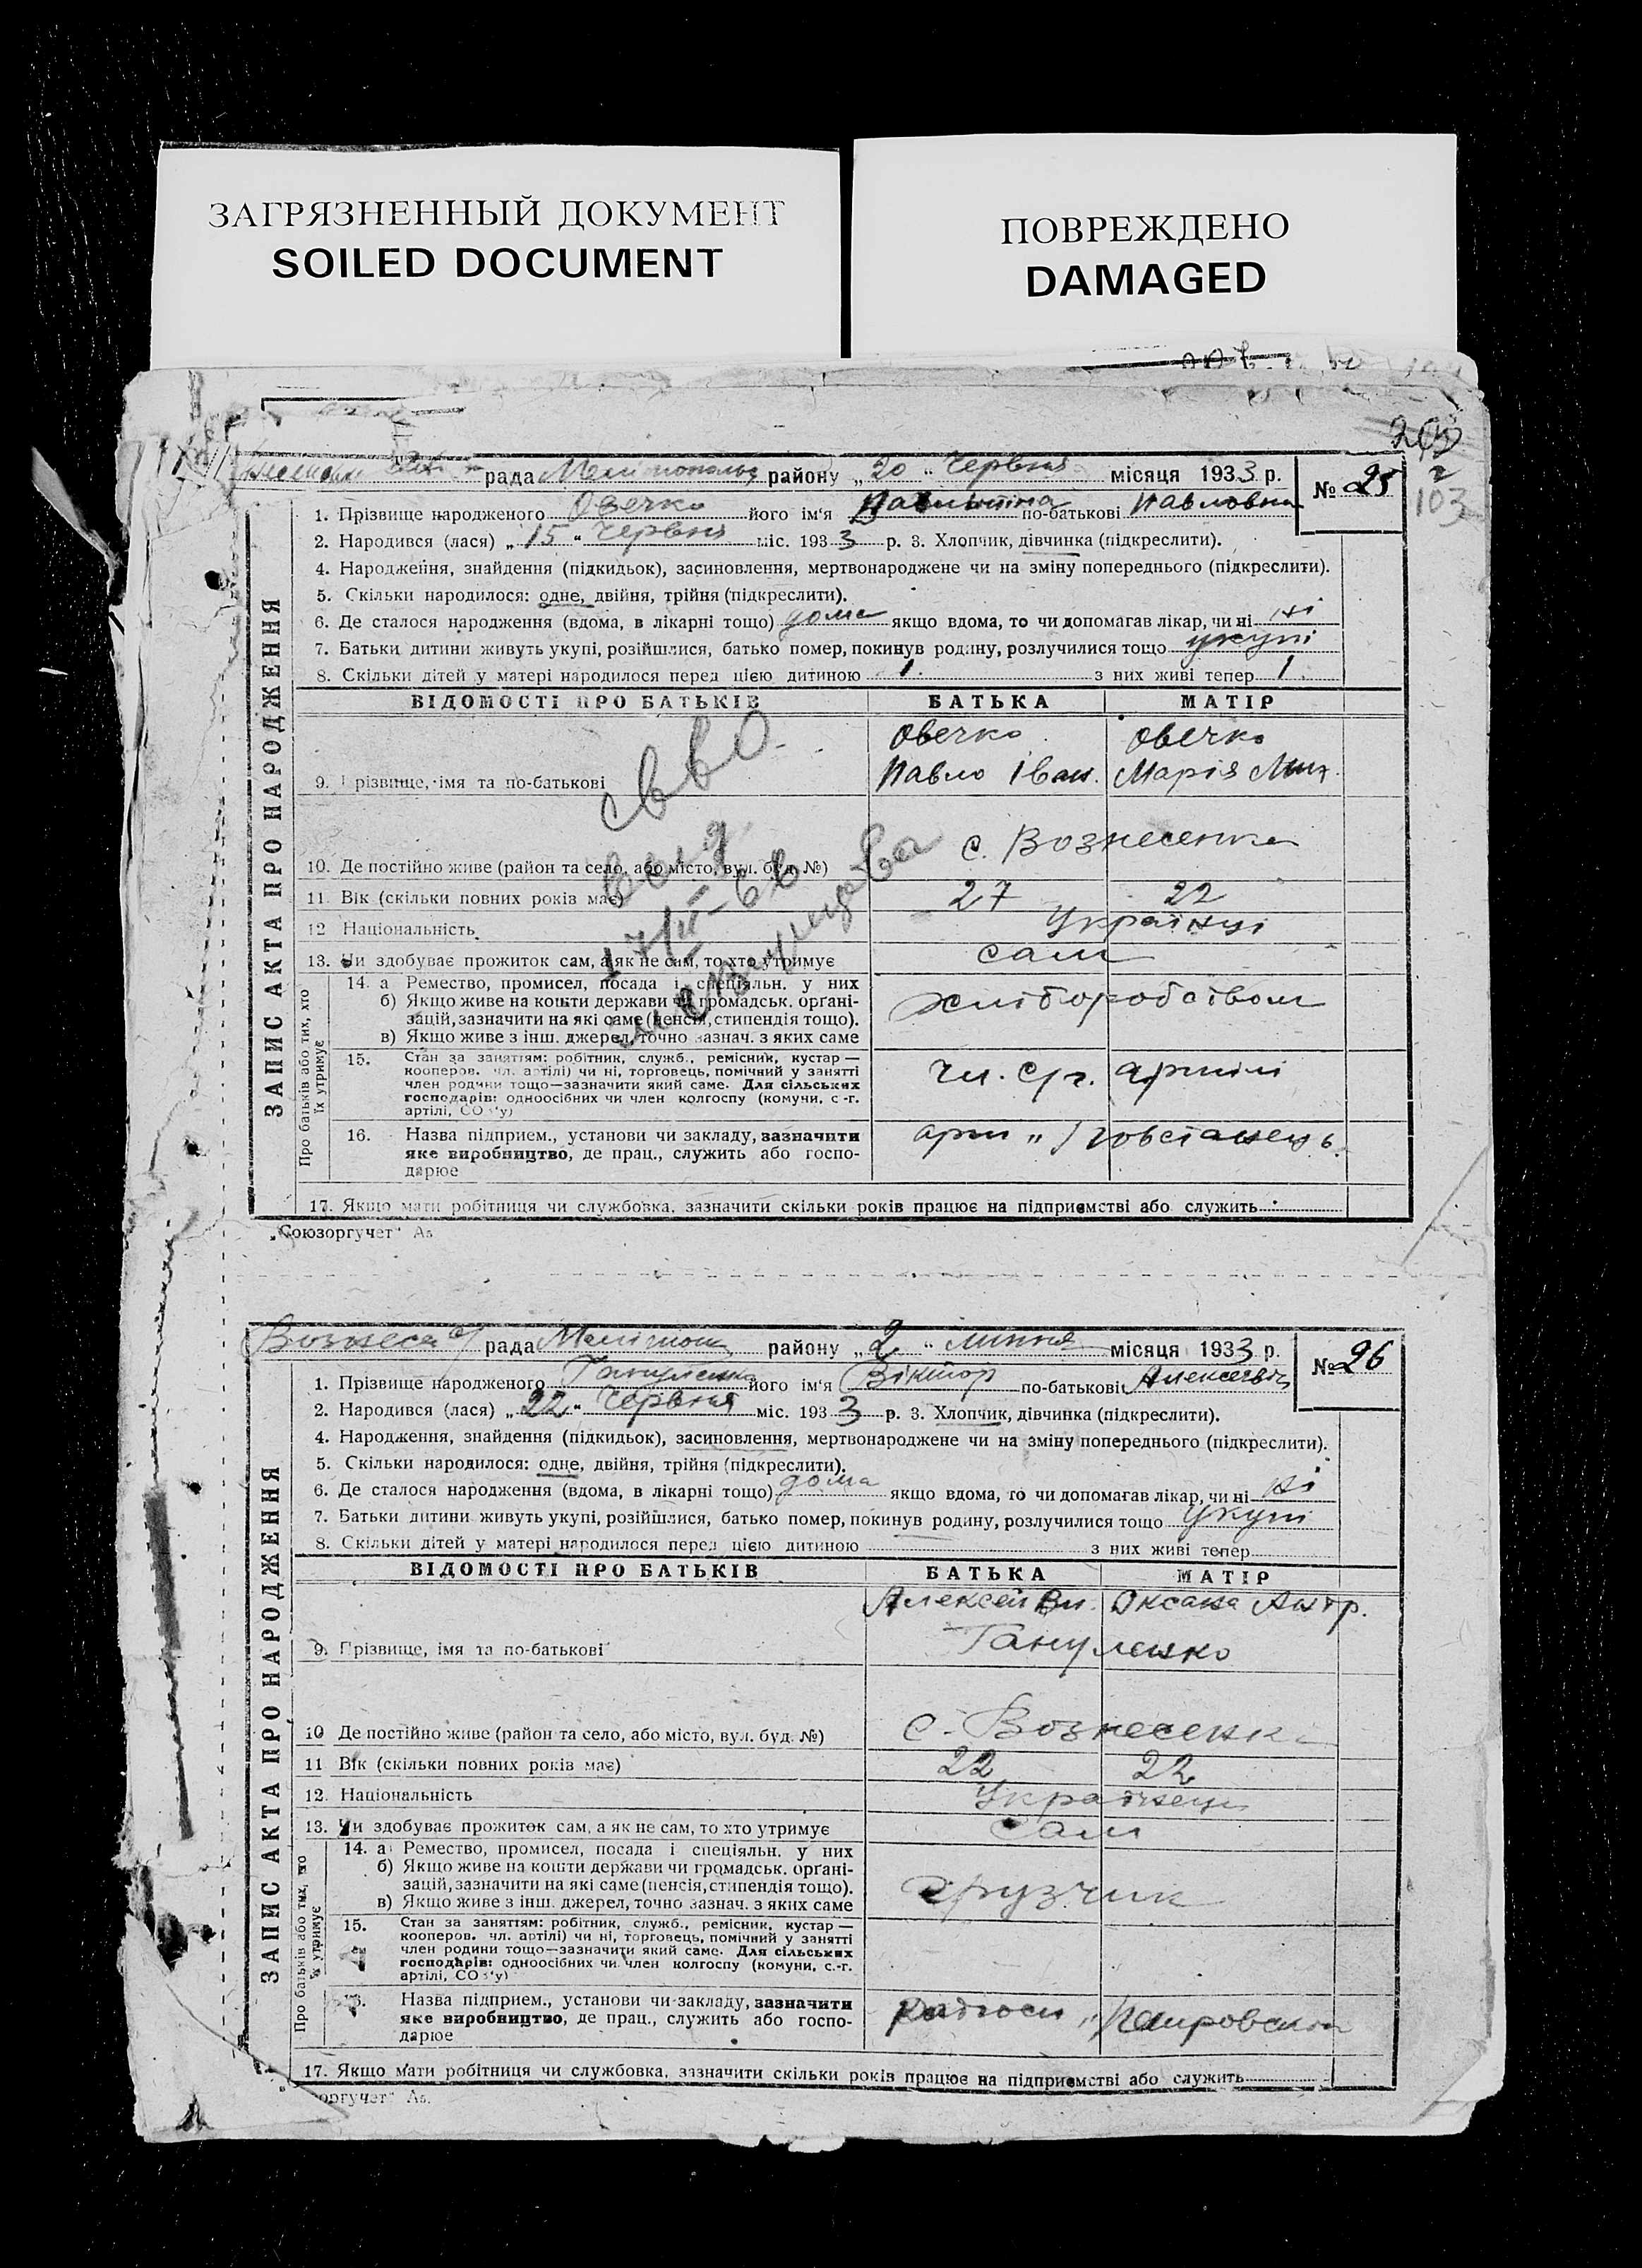 ЗАГРЯЗНЕННЫЙ ДОКУМЕНТ
SOILED DOCUMENT
ПОВРЕЖДЕНО
DAMAGED
103
рада Мелітопольс району „20“ Червня місяця 1933 р.
№ 25
ЗАПИС АКТА ПРО НАРОДЖЕННЯ
1. Прізвище народженого Овечко його ім‘я Валентіна по-батькові Павловна
2. Народився (лася) „15“ Червня міс. 1933 р. 3. Хлопчик, дівчинка (підкреслити).
4. Народження, знайдення (підкидьок), засиновлення, мертвонароджене чи на зміну попереднього (підкреслити).
5. Скільки народилося: одне, двійня, трійня (підкреслити).
6. Де сталося народження (вдома, в лікарні тощо) дома якщо вдома, то чи допомагав лікар, чи ні ні
7. Батьки дитини живуть укупі, розійшлися, батько помер, покинув родину, розлучилися тощо укупі
8. Скільки дітей у матері народилося перед цією дитиною 1 з них живі тепер 1
ВІДОМОСТІ ПРО БАТЬКІВ БАТЬКА МАТІР
Овечко Овечко
9. Прізвище, імя та по-батькові Павло Іван. Марія Мих.
10. Де постійно живе (район та село, або місто, вул. буд. №) с. Вознесенка
11. Вік (скільки повних років має) 27 22
12 Національність Українці
13. Чи здобуває прожиток сам, а як не сам, то хто утримує сам
Про батьків або тих, хто їх утримує
14. а Ремество, промисел, посада і спеціяльн. у них
б) Якщо живе на кошти держави чи громадськ. орґані-
зацій, зазначити на які саме (пенсія, стипендія тощо). хліборобством
в) Якщо живе з інш. джерел, точно зазнач. з яких саме
15. Стан за заняттям: робітник, служб., ремісник, кустар —
кооперов. чл. артілі) чи ні, торговець, помічний у занятті
член родини тощо—зазначити який саме. Для сільських
господарів: одноосібних чи член колгоспу (комуни, с-г.
артілі, СОЗ'у) чл. с/г. артілі
16. Назва підприєм., установи чи закладу, зазначити
яке виробництво, де прац., служить або госпо-
дарює арт „Повстанець
17. Якщо мати робітниця чи службовка, зазначити скільки років працює на підприємстві або служить
„Союзоргучет“
свво
17/II-66
Вознесен с/ рада Мелітоп району „2“ липня місяця 1933 р.
№ 26
ЗАПИС АКТА ПРО НАРОДЖЕННЯ
1. Прізвище народженого Гануленко його ім‘я Віктор по-батькові Алексеевіч
2. Народився (лася) „22“ Червня міс. 1933 р. 3. Хлопчик, дівчинка (підкреслити).
4. Народження, знайдення (підкидьок), засиновлення, мертвонароджене чи на зміну попереднього (підкреслити).
5. Скільки народилося: одне, двійня, трійня (підкреслити).
6. Де сталося народження (вдома, в лікарні тощо) дома якщо вдома, то чи допомагав лікар, чи ні ні
7. Батьки дитини живуть укупі, розійшлися, батько помер, покинув родину, розлучилися тощо укупі
8. Скільки дітей у матері народилося перед цією дитиною з них живі тепер
ВІДОМОСТІ ПРО БАТЬКІВ БАТЬКА МАТІР
Алексей Вл. Оксана Антр.
9. Прізвище, імя та по-батькові Гануленко
10 Де постійно живе (район та село, або місто, вул. буд. №) с. Вознесенка
11 Вік (скільки повних років має) 22 22
12. Національність Українець
13. Чи здобуває прожиток сам, а як не сам, то хто утримує сам
Про батьків або тих, що їх утримує
14. а Ремество, промисел, посада і спеціяльн. у них
б) Якщо живе на кошти держави чи громадськ. орґані-
зацій, зазначити на які саме (пенсія, стипендія тощо). грузчик
в) Якщо живе з інш. джерел, точно зазнач. з яких саме
15. Стан за заняттям: робітник, служб., ремісник, кустар —
кооперов. чл. артілі) чи ні, торговець, помічний у занятті
член родини тощо—зазначити який саме. Для сільських
господарів: одноосібних чи член колгоспу (комуни, с.-г.
артілі, СОЗ'у)
16. Назва підприєм., установи чи закладу, зазначити
яке виробництво, де прац., служить або госпо-
дарює радгосп
17. Якщо мати робітниця чи службовка, зазначити скільки років працює на підприємстві або служить